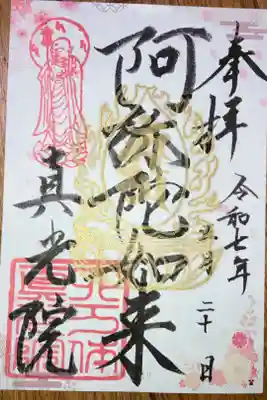 奉拝
令和七年
月二十日
阿弥陀如来
真光院